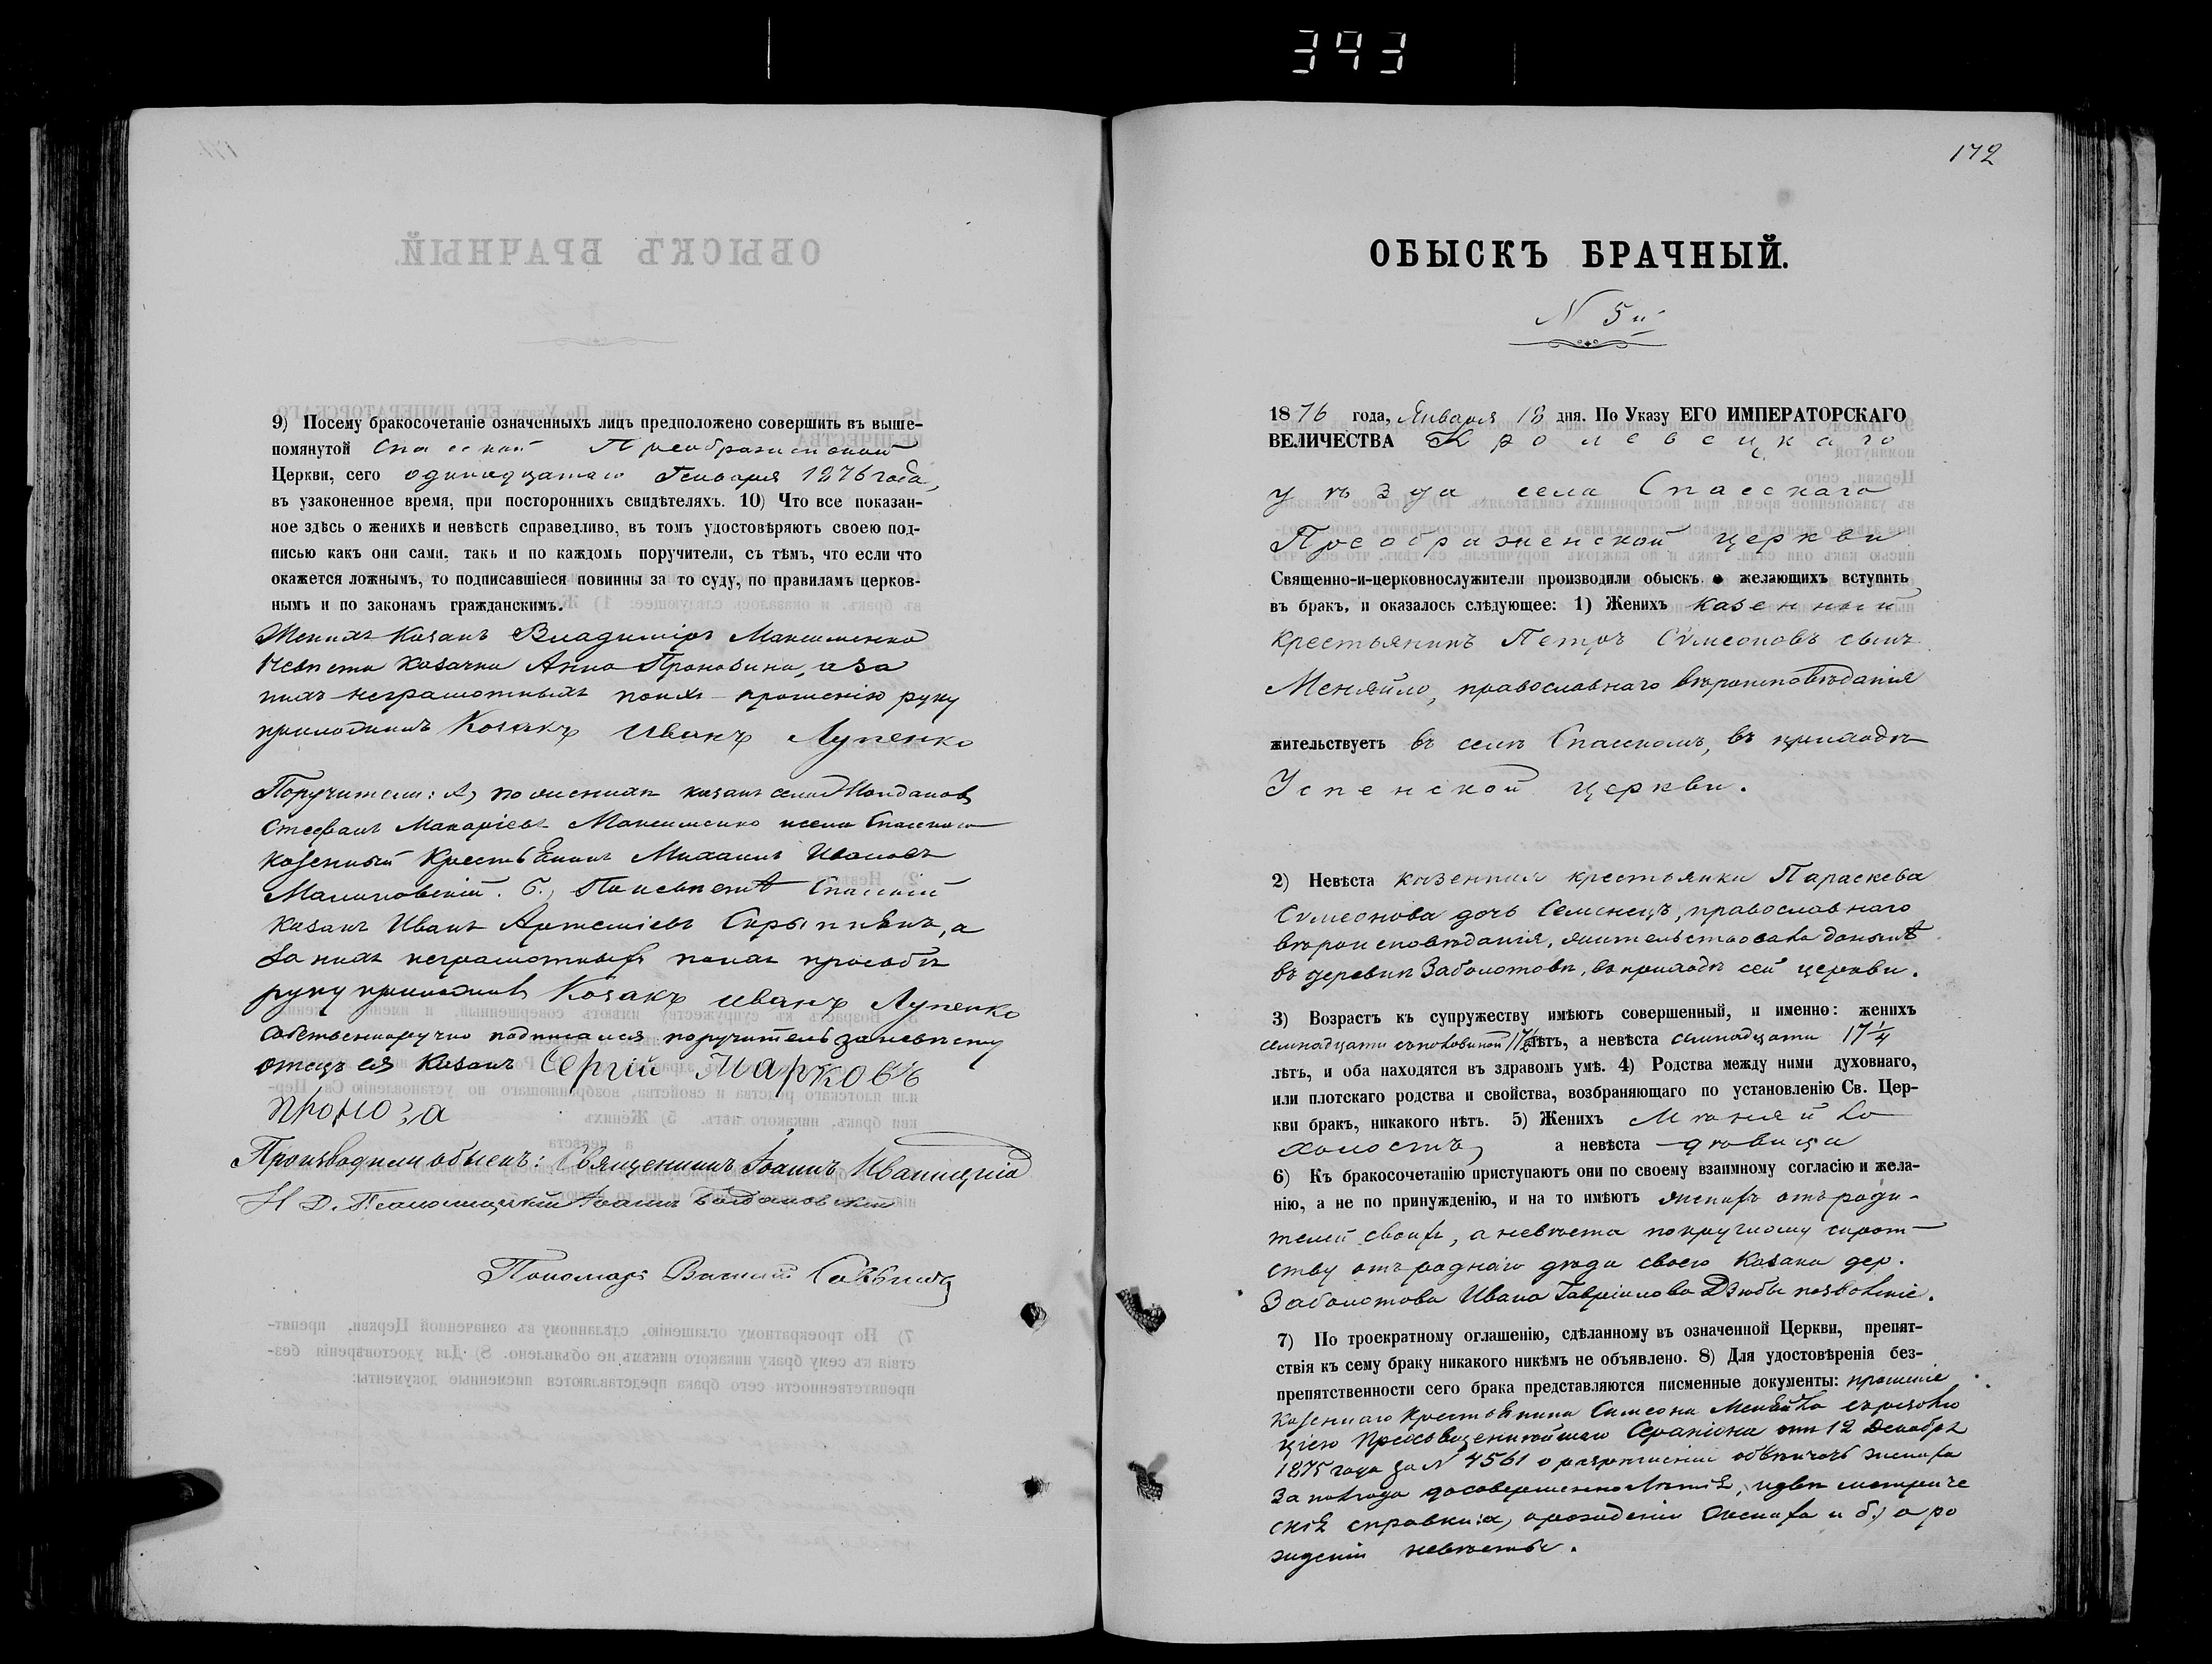 393
172
9) Посему бракосочетаніе означенныхъ лицъ предположено совершить въ выше-
помянутой Спасской Преображенской
Церкви, сего одинадцатаго Генваря 1876 года,
въ узаконенное время, при постороннихъ свидѣтеляхъ. 10) Что все показан-
ное здѣсь о женихѣ и невѣстѣ справедливо, въ томъ удостовѣряютъ своею под-
писью какъ они сами, такъ и по каждомъ поручители, съ тѣмъ, что если что
окажется ложнымъ, то подписавшіеся повинны за то суду, по правиламъ церков-
нымъ и по законамъ гражданскимъ.
Женихъ козакъ Владиміръ Максименко
Невѣста козачка Анна Пронозина, а за
нихъ неграмотныхъ по ихъ прошенію руку
приложилъ Козакъ Иванъ Лупенко
Поручители: а) по женихѣ козакъ села
Стефанъ Макаріевъ Максименко и села Спасскаго
козенный крестьянинъ Михаилъ Ивановъ
Малиновскій. б) По невѣстѣ Спасскій
козакъ Иванъ Артеміевъ, а
за нихъ неграмотныхъ по ихъ просьбѣ
руку приложилъ Козакъ Иванъ Лупенко
собственноручно подписался поручитель за невѣсту
отецъ ея козакъ Сергій Марковъ
Проноза
Производили обыскъ: Священникъ Іоаннъ
И. Д. Псаломщикъ Іоаннъ
Пономарь Василій
ОБЫСКЪ БРАЧНЫЙ.
N 5й
1876 года, Января 18 дня. По Указу ЕГО ИМПЕРАТОРСКАГО
ВЕЛИЧЕСТВА Кролевецкаго
уѣзда села Спасскаго
Преображенской церкви
Священно-и-церковнослужители производили обыскъ о желающихъ вступить
въ бракъ, и оказалось слѣдующее: 1) Женихъ казенный
крестьянинъ Петръ Сѵмеоновъ сынъ
Меняйло, православнаго вѣроисповѣданія
жительствуетъ въ селѣ Спасскомъ, въ приходѣ
Успенской церкви.
2) Невѣста казенная крестьянка Параскева
Сѵмеонова дочь Семенецъ, православнаго
вѣроисповѣданія, жительствовала донынѣ
въ деревнѣ Заболотовѣ, въ приходѣ сей церкви.
3) Возрастъ къ супружеству имѣютъ совершенный, и именно: женихъ
семнадцати съ половиной 17½ лѣтъ, а невѣста семнадцати 17¼
лѣтъ, и оба находятся въ здравомъ умѣ. 4) Родства между ними духовнаго,
или плотскаго родства и свойства, возбраняющаго по установленію Св. Цер-
кви бракъ, никакого нѣтъ. 5) Женихъ Мѣняйло
холостъ, а невѣста дѣвица
6) Къ бракосочетанію приступаютъ они по своему взаимному согласію и жела-
нію, а не по принужденію, и на то имѣютъ женихъ отъ роди-
телей своихъ, а невѣста по круглому сирот-
ству отъ роднаго дяди своего козака дер.
Заболотова Ивана Гавріилова Дзюбы позволеніе.
7) По троекратному оглашенію, сдѣланному въ означенной Церкви, препят-
ствія къ сему браку никакого никѣмъ не объявлено. 8) Для удостовѣренія без-
препятственности сего брака представляются писменные документы: прошеніе
козеннаго крестьянина Симеона Меняйла съ резолю
цією Преосвященнѣйшаго Серапіона отъ 12 Декабря
1875 года за N 4561 о разрѣшеніи обвѣнчать жениха
за полгода до совершеннолѣтія, и двѣ метриче
скія справки: а) о рожденіи жениха и б) о ро
жденіи невѣсты.